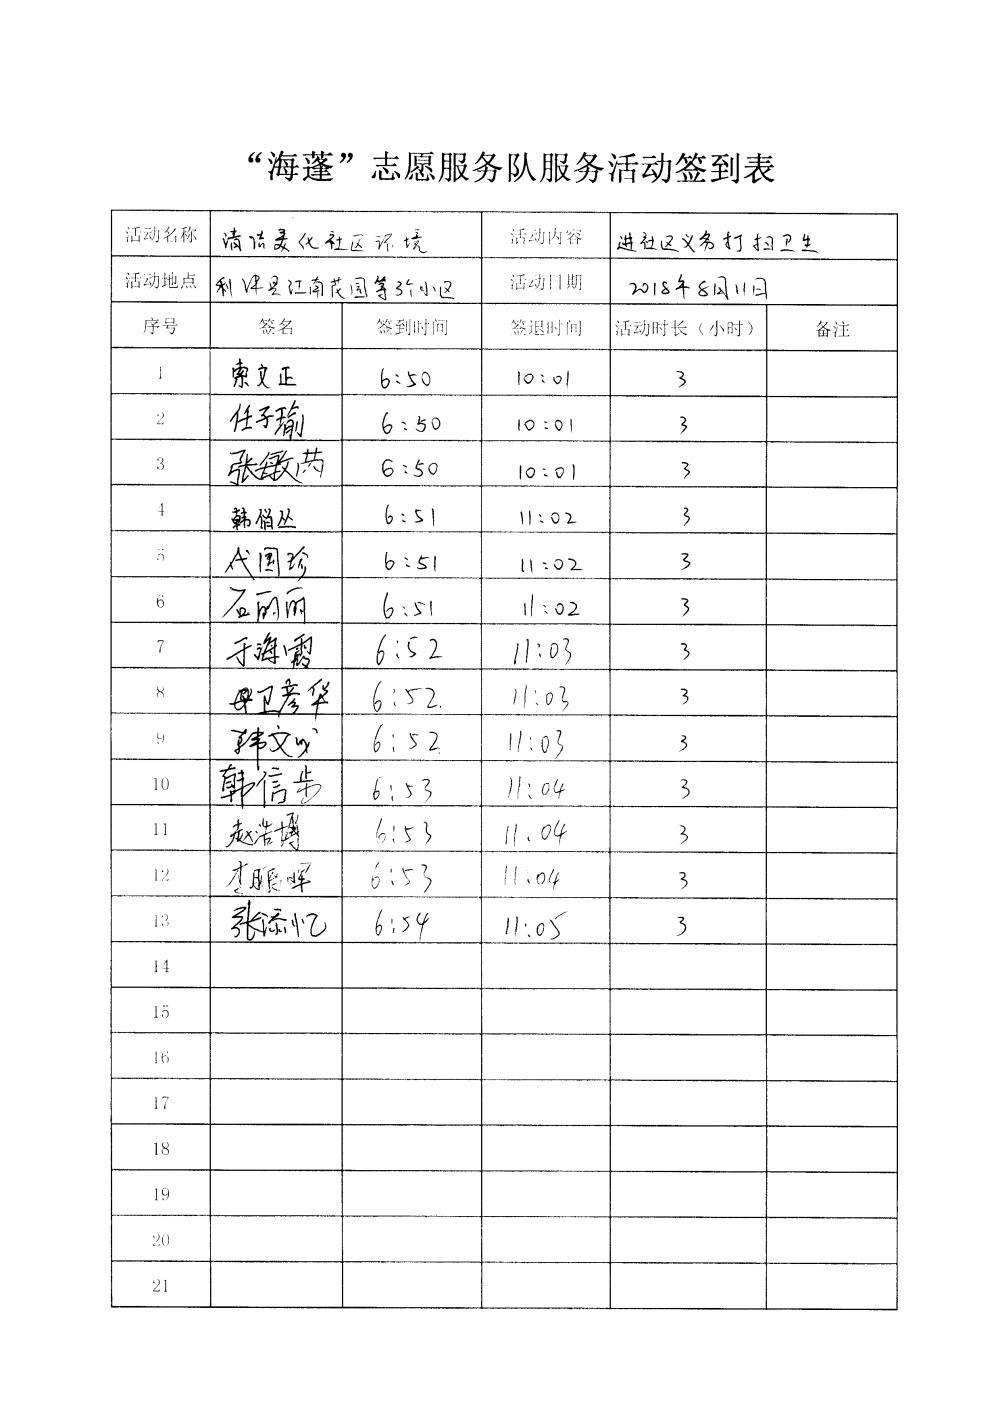 “海蓬”志愿服务队服务活动签到表
活动名称 清洁美化社区环境 活动内容 进社区义务打扫卫生
活动地点 利津县江南花园等3个小区 活动日期 2018年8月11日
序号 签名 签到时间 签退时间 活动时长（小时） 备注
1 索文正 6:50 10:01 3
2 任子瑜 6:50 10:01 3
3 张敏芮 6:50 10:01 3
4 韩俏丛 6:51 11:02 3
5 代国珍 6:51 11:02 3
6 石丽丽 6:51 11:02 3
7 于海霞 6:52 11:03 3
8 卫彦华 6:52 11:03 3
9 韩文 6:52 11:03 3
10 韩信步 6:53 11:04 3
11 赵浩博 6:53 11:04 3
12 李晖 6:53 11:04 3
13 张添忆 6:54 11:05 3
14
15
16
17
18
19
20
21